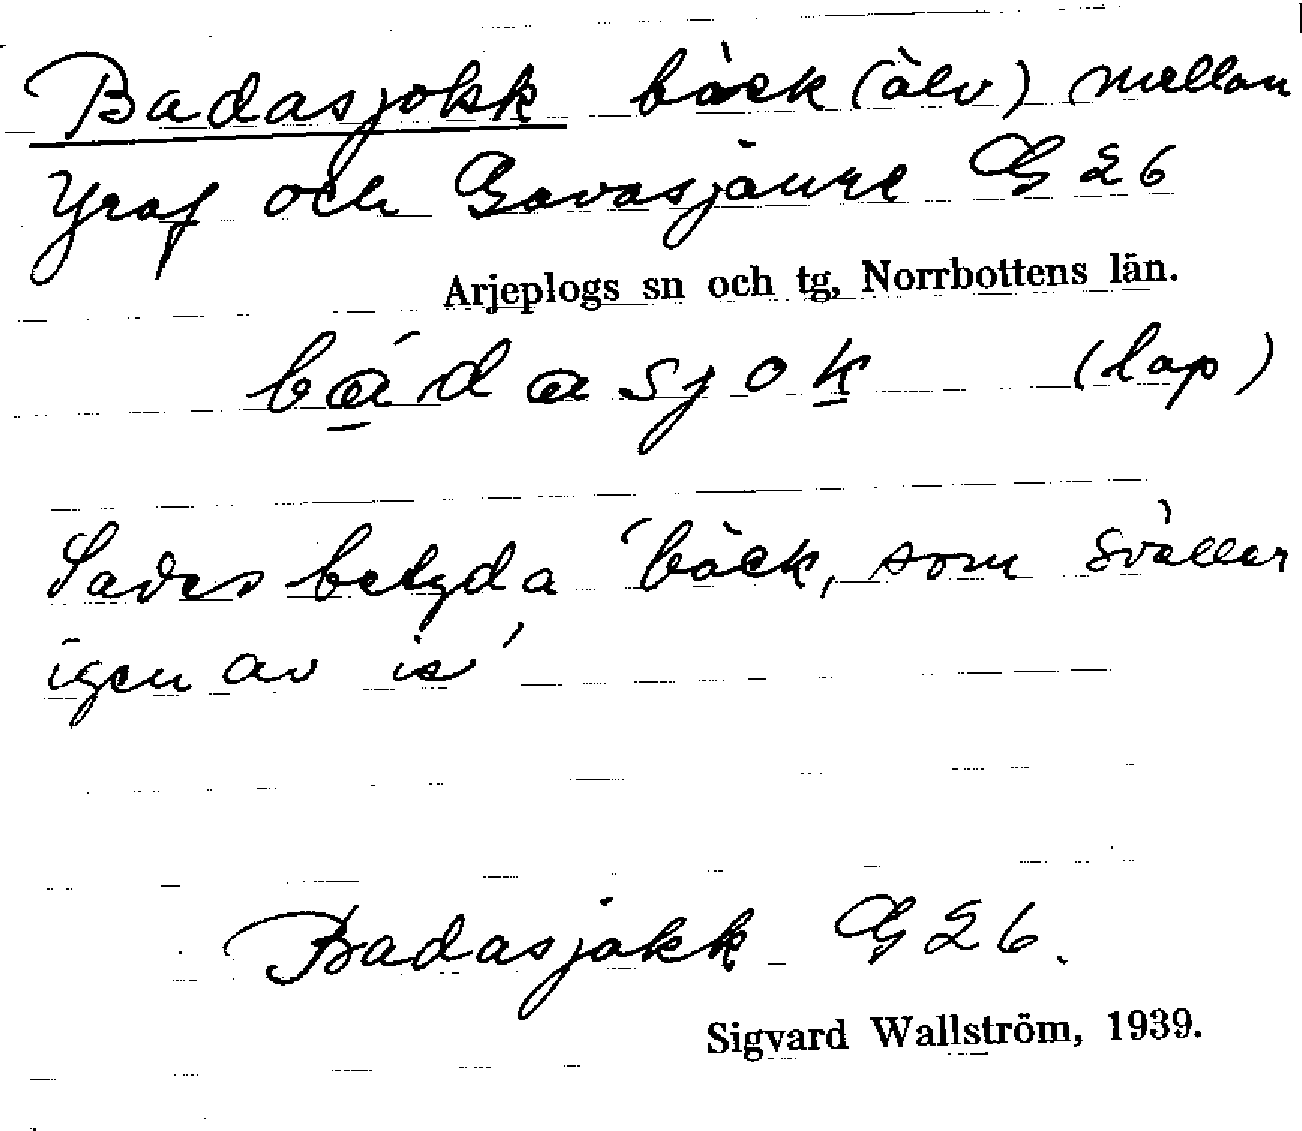 Badasjokk bäck (älv) mellan
Yraf och Gavasjaure G 26
Arjeplogs sn och tg, Norrbottens län.
bádasjok (lap)
Sades betyda ´bäck, som sväller
igen av is´
Badasjåkk G 26.
Sigvard Wallström, 1939.